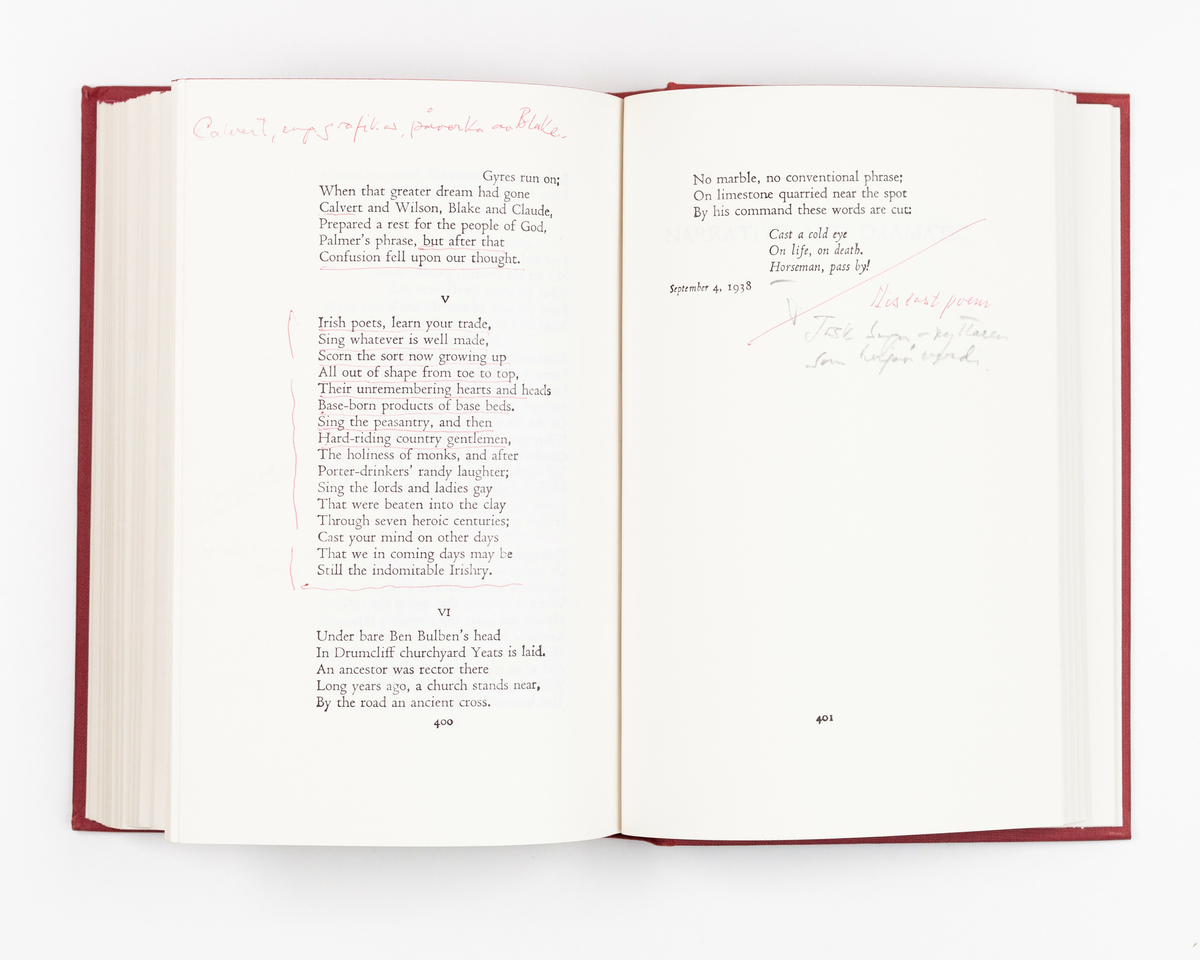 Calvert, eng grafiker, påverka av Blake.
Gyres run on;
When that greater dream had gone
Calvert and Wilson, Blake and Claude,
Prepared a rest for the people of God,
Palmer's phrase, but after that
Confusion fell upon our thought.
V
Irish poets, learn your trade,
Sing whatever is well made,
Scorn the sort now growing up
All out of shape from toe to top,
Their unremembering hearts and heads
Base-born products of base beds.
Sing the peasantry, and then
Hard-riding country gentlemen,
The holiness of monks, and after
Porter-drinkers' randy laughter;
Sing the lords and ladies gay
That were beaten into the clay
Through seven heroic centuries;
Cast your mind on other days
That we in coming days may be
Still the indomitable Irishry.
VI
Under bare Ben Bulben's head
In Drumcliff churchyard Yeats is laid.
An ancestor was rector there
Long years ago, a church stands near,
By the road an ancient cross.
400
No marble, no conventional phrase;
On limestone quarried near the spot
By his command these words are cut:
Cast a cold eye
On life, on death.
Horseman, pass by!
September 4, 1938
His last poem
401